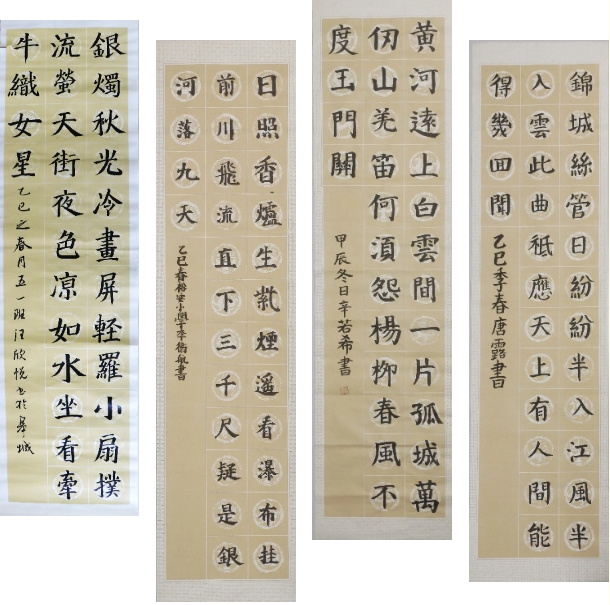 銀燭秋光冷畫屏輕羅小扇撲
流螢天街夜色凉如水坐看牽
牛織女星
乙巳之春月五一班汪欣悦书於皋城
日照香爐生紫煙遥看瀑布挂
前川飛流直下三千尺疑是銀
河落九天
乙巳春裕安小學李衛航書
黄河遠上白雲間一片孤城萬
仞山羌笛何須怨楊柳春風不
度玉門關
甲辰冬日辛若希書
錦城絲管日紛紛半入江風半
入雲此曲祗應天上有人間能
得幾回聞
乙巳季春唐露書